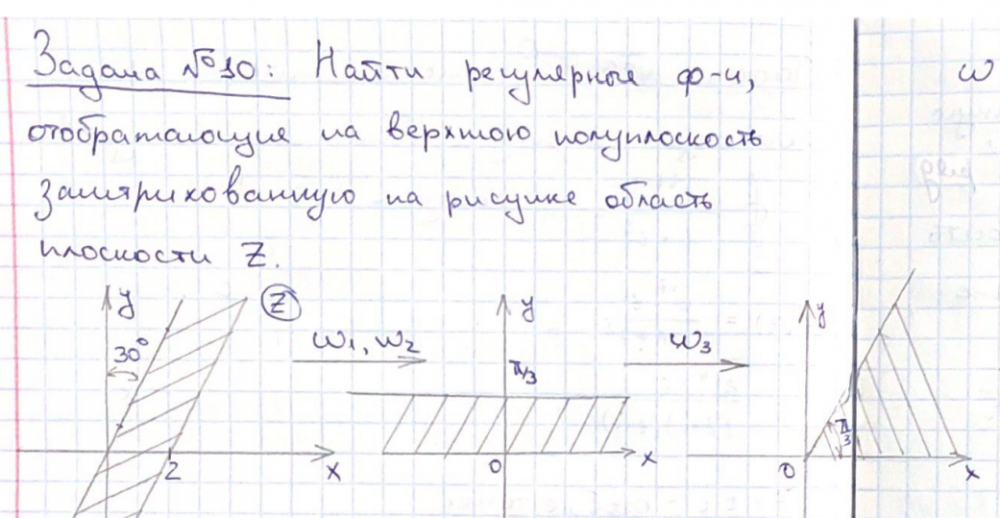 Задача №10: Найти регулярные ф-и,
отображающие на верхнюю полуплоскость
заштрихованную на рисунке область
плоскости Z.
ω
y Z
30°
2 x
ω1, ω2
y
π/3
0 x
ω3
y
π/3
0 x